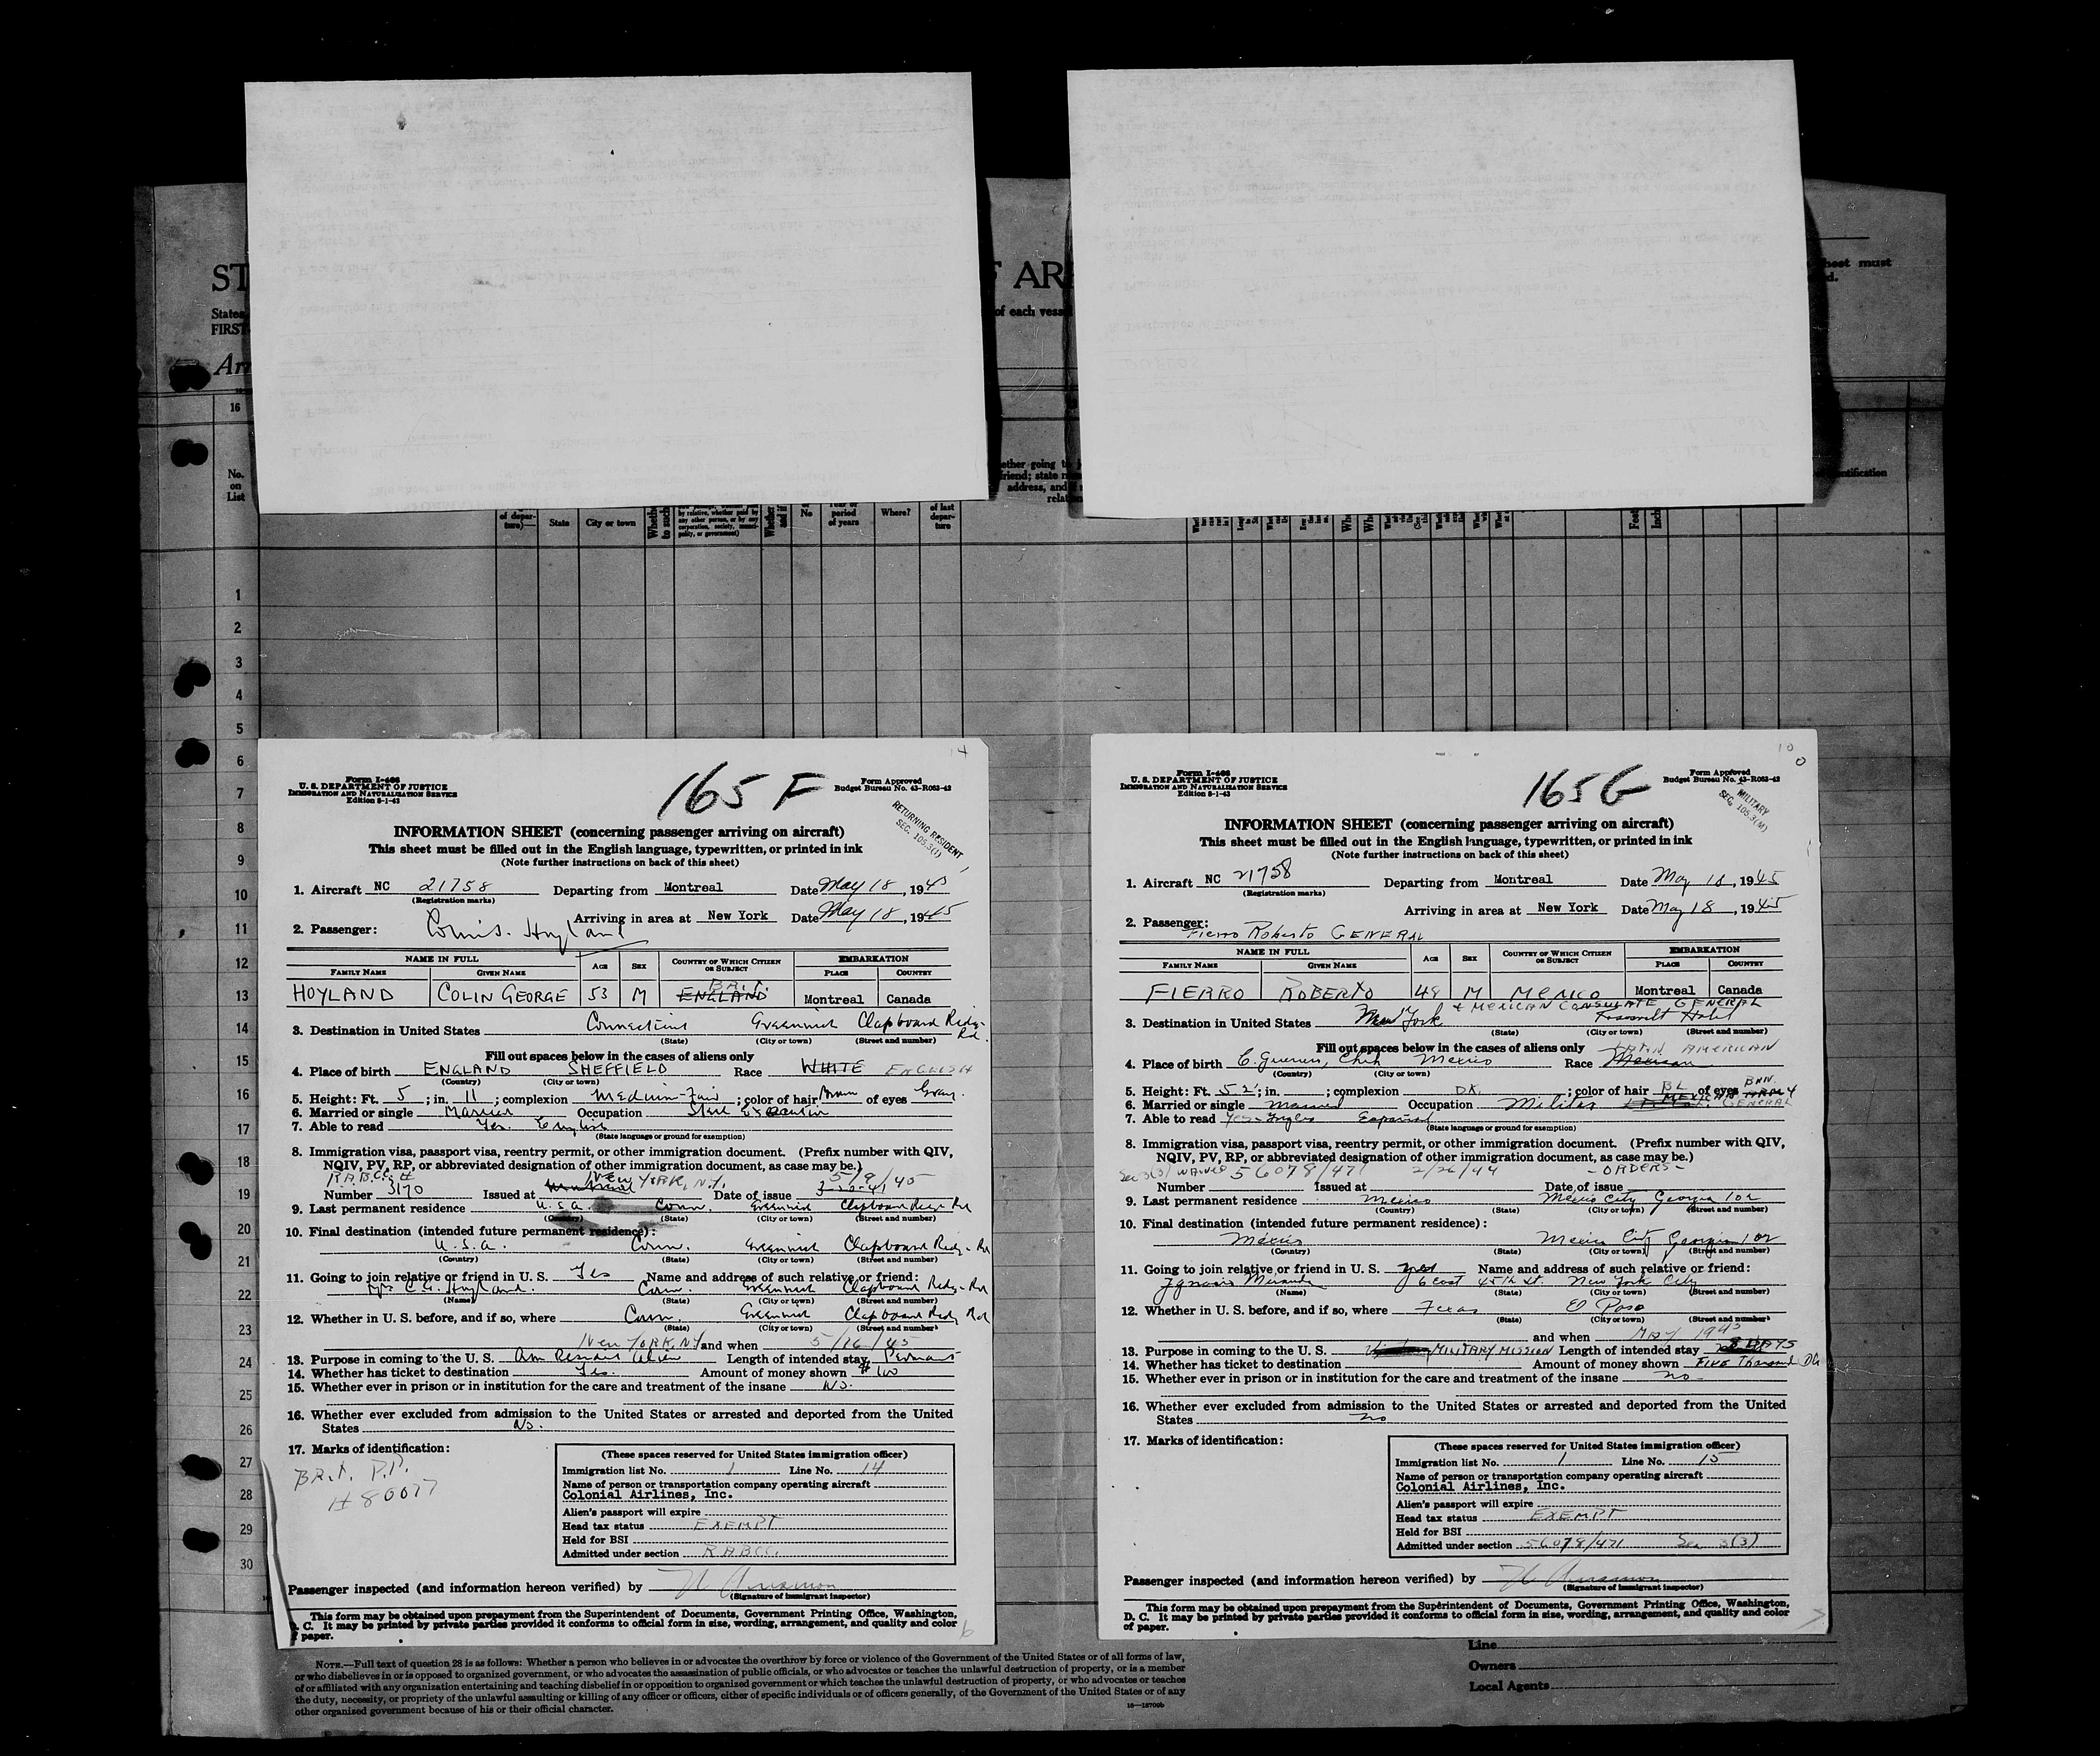 ST
F ARR
heet must
d.
States
of each vess
FIRST
Arr
16
No.
on
List
ether going to
friend; state n
address, and
relat
ntification
of depar-
ture)
State
City or town
by relative, whether paid by
any other person, or by any
corporation, society, munici-
pality, or government)
No
Year or
period
of years
Where?
of last
depar-
ture
Feet
1
2
3
4
5
6
7
8
9
10
11
12
13
14
15
16
17
18
19
20
21
22
23
24
25
26
27
28
29
30
Form I-466
U. S. DEPARTMENT OF JUSTICE
IMMIGRATION AND NATURALIZATION SERVICE
Edition 8-1-43
165 F
Form Approved
Budget Bureau No. 43-R063-42
RETURNING RESIDENT
SEC. 105.3(1)
INFORMATION SHEET (concerning passenger arriving on aircraft)
This sheet must be filled out in the English language, typewritten, or printed in ink
(Note further instructions on back of this sheet)
1. Aircraft NC 21758 Departing from Montreal Date May 18, 1945
(Registration marks)
Arriving in area at New York Date May 18, 1945
2. Passenger: Hoyland
NAME IN FULL AGE SEX COUNTRY OF WHICH CITIZEN OR SUBJECT EMBARKATION
FAMILY NAME GIVEN NAME PLACE COUNTRY
BRIT.
HOYLAND COLIN GEORGE 53 M ENGLAND Montreal Canada
3. Destination in United States Connecticut Greenwich Clapboard Ridge Rd.
(State) (City or town) (Street and number)
Fill out spaces below in the cases of aliens only
4. Place of birth ENGLAND SHEFFIELD Race WHITE ENGLISH
(Country) (City or town)
5. Height: Ft. 5; in. 11; complexion Medium-Fair; color of hair Brown of eyes Gray.
6. Married or single Married Occupation Steel Executive
7. Able to read Yes. English
(State language or ground for exemption)
8. Immigration visa, passport visa, reentry permit, or other immigration document. (Prefix number with QIV,
NQIV, PV, RP, or abbreviated designation of other immigration document, as case may be.)
R.A.B.C.C. #
Number 3170 Issued at Montreal New York, N.Y. Date of issue 5/9/45
9. Last permanent residence U.S.A. Conn. Greenwich Clapboard Ridge Rd
(Country) (State) (City or town) (Street and number)
10. Final destination (intended future permanent residence):
U.S.A. Conn. Greenwich Clapboard Ridge Rd
(Country) (State) (City or town) (Street and number)
11. Going to join relative or friend in U. S. Yes Name and address of such relative or friend:
C.G. Hoyland. Conn. Greenwich Clapboard Ridge Rd
(Name) (State) (City or town) (Street and number)
12. Whether in U. S. before, and if so, where Conn. Greenwich Clapboard Ridge Rd
(State) (City or town) (Street and number)
New York, N.Y. and when 5/16/45
13. Purpose in coming to the U. S. Am Resident Alien Length of intended stay Permanent
14. Whether has ticket to destination Yes. Amount of money shown $100
15. Whether ever in prison or in institution for the care and treatment of the insane No.
16. Whether ever excluded from admission to the United States or arrested and deported from the United
States No.
17. Marks of identification:
BRIT. P.P.
# 80077
(These spaces reserved for United States immigration officer)
Immigration list No. 1 Line No. 14
Name of person or transportation company operating aircraft
Colonial Airlines, Inc.
Alien's passport will expire
Head tax status EXEMPT
Held for BSI
Admitted under section R.A.B.C.C.
Passenger inspected (and information hereon verified) by
(Signature of immigrant inspector)
This form may be obtained upon prepayment from the Superintendent of Documents, Government Printing Office, Washington,
D. C. It may be printed by private parties provided it conforms to official form in size, wording, arrangement, and quality and color
of paper.
Form I-466
U. S. DEPARTMENT OF JUSTICE
IMMIGRATION AND NATURALIZATION SERVICE
Edition 8-1-43
165 G
Form Approved
Budget Bureau No. 43-R063-42
MILITARY
SEC. 105.3(M)
INFORMATION SHEET (concerning passenger arriving on aircraft)
This sheet must be filled out in the English language, typewritten, or printed in ink
(Note further instructions on back of this sheet)
1. Aircraft NC 21758 Departing from Montreal Date May 18, 1945
(Registration marks)
Arriving in area at New York Date May 18, 1945
2. Passenger: Fierro Roberto GENERAL
NAME IN FULL AGE SEX COUNTRY OF WHICH CITIZEN OR SUBJECT EMBARKATION
FAMILY NAME GIVEN NAME PLACE COUNTRY
FIERRO ROBERTO 48 M MEXICO Montreal Canada
MEXICAN CONSULATE GENERAL
3. Destination in United States New York Roosevelt Hotel
(State) (City or town) (Street and number)
Fill out spaces below in the cases of aliens only LATIN AMERICAN
4. Place of birth C. Guerrero, Chih Mexico Race Mexican
(Country) (City or town)
5. Height: Ft. 5 2; in. ; complexion DK. ; color of hair BL of eyes BRN.
6. Married or single Married Occupation Militar MEXICAN ARMY GENERAL
7. Able to read Yes-Ingles Español
(State language or ground for exemption)
8. Immigration visa, passport visa, reentry permit, or other immigration document. (Prefix number with QIV,
NQIV, PV, RP, or abbreviated designation of other immigration document, as case may be.)
Sec 3(3) WAIVED 56078/471 2/26/44 - ORDERS -
Number Issued at Date of issue
9. Last permanent residence Mexico Mexico City Georgia 102
(Country) (State) (City or town) (Street and number)
10. Final destination (intended future permanent residence):
Mexico Mexico City Georgia 102
(Country) (State) (City or town) (Street and number)
11. Going to join relative or friend in U. S. yes Name and address of such relative or friend:
Ignacio Miranda 6 east 45th st. New York City
(Name) (State) (City or town) (Street and number)
12. Whether in U. S. before, and if so, where Texas El Paso
(State) (City or town) (Street and number)
and when MAY 1943
13. Purpose in coming to the U. S. MILITARY MISSION Length of intended stay DAYS
14. Whether has ticket to destination Amount of money shown Five Thousand
15. Whether ever in prison or in institution for the care and treatment of the insane no
16. Whether ever excluded from admission to the United States or arrested and deported from the United
States no
17. Marks of identification:
(These spaces reserved for United States immigration officer)
Immigration list No. 1 Line No. 15
Name of person or transportation company operating aircraft
Colonial Airlines, Inc.
Alien's passport will expire
Head tax status EXEMPT
Held for BSI
Admitted under section 56078/471 Sec 3(3)
Passenger inspected (and information hereon verified) by
(Signature of immigrant inspector)
This form may be obtained upon prepayment from the Superintendent of Documents, Government Printing Office, Washington,
D. C. It may be printed by private parties provided it conforms to official form in size, wording, arrangement, and quality and color
of paper.
NOTE.—Full text of question 28 is as follows: Whether a person who believes in or advocates the overthrow by force or violence of the Government of the United States or of all forms of law,
or who disbelieves in or is opposed to organized government, or who advocates the assassination of public officials, or who advocates or teaches the unlawful destruction of property, or is a member
of or affiliated with any organization entertaining and teaching disbelief in or opposition to organized government or which teaches the unlawful destruction of property, or who advocates or teaches
the duty, necessity, or propriety of the unlawful assaulting or killing of any officer or officers, either of specific individuals or of officers generally, of the Government of the United States or of any
other organized government because of his or their official character.
16—18700b
Line
Owners
Local Agents